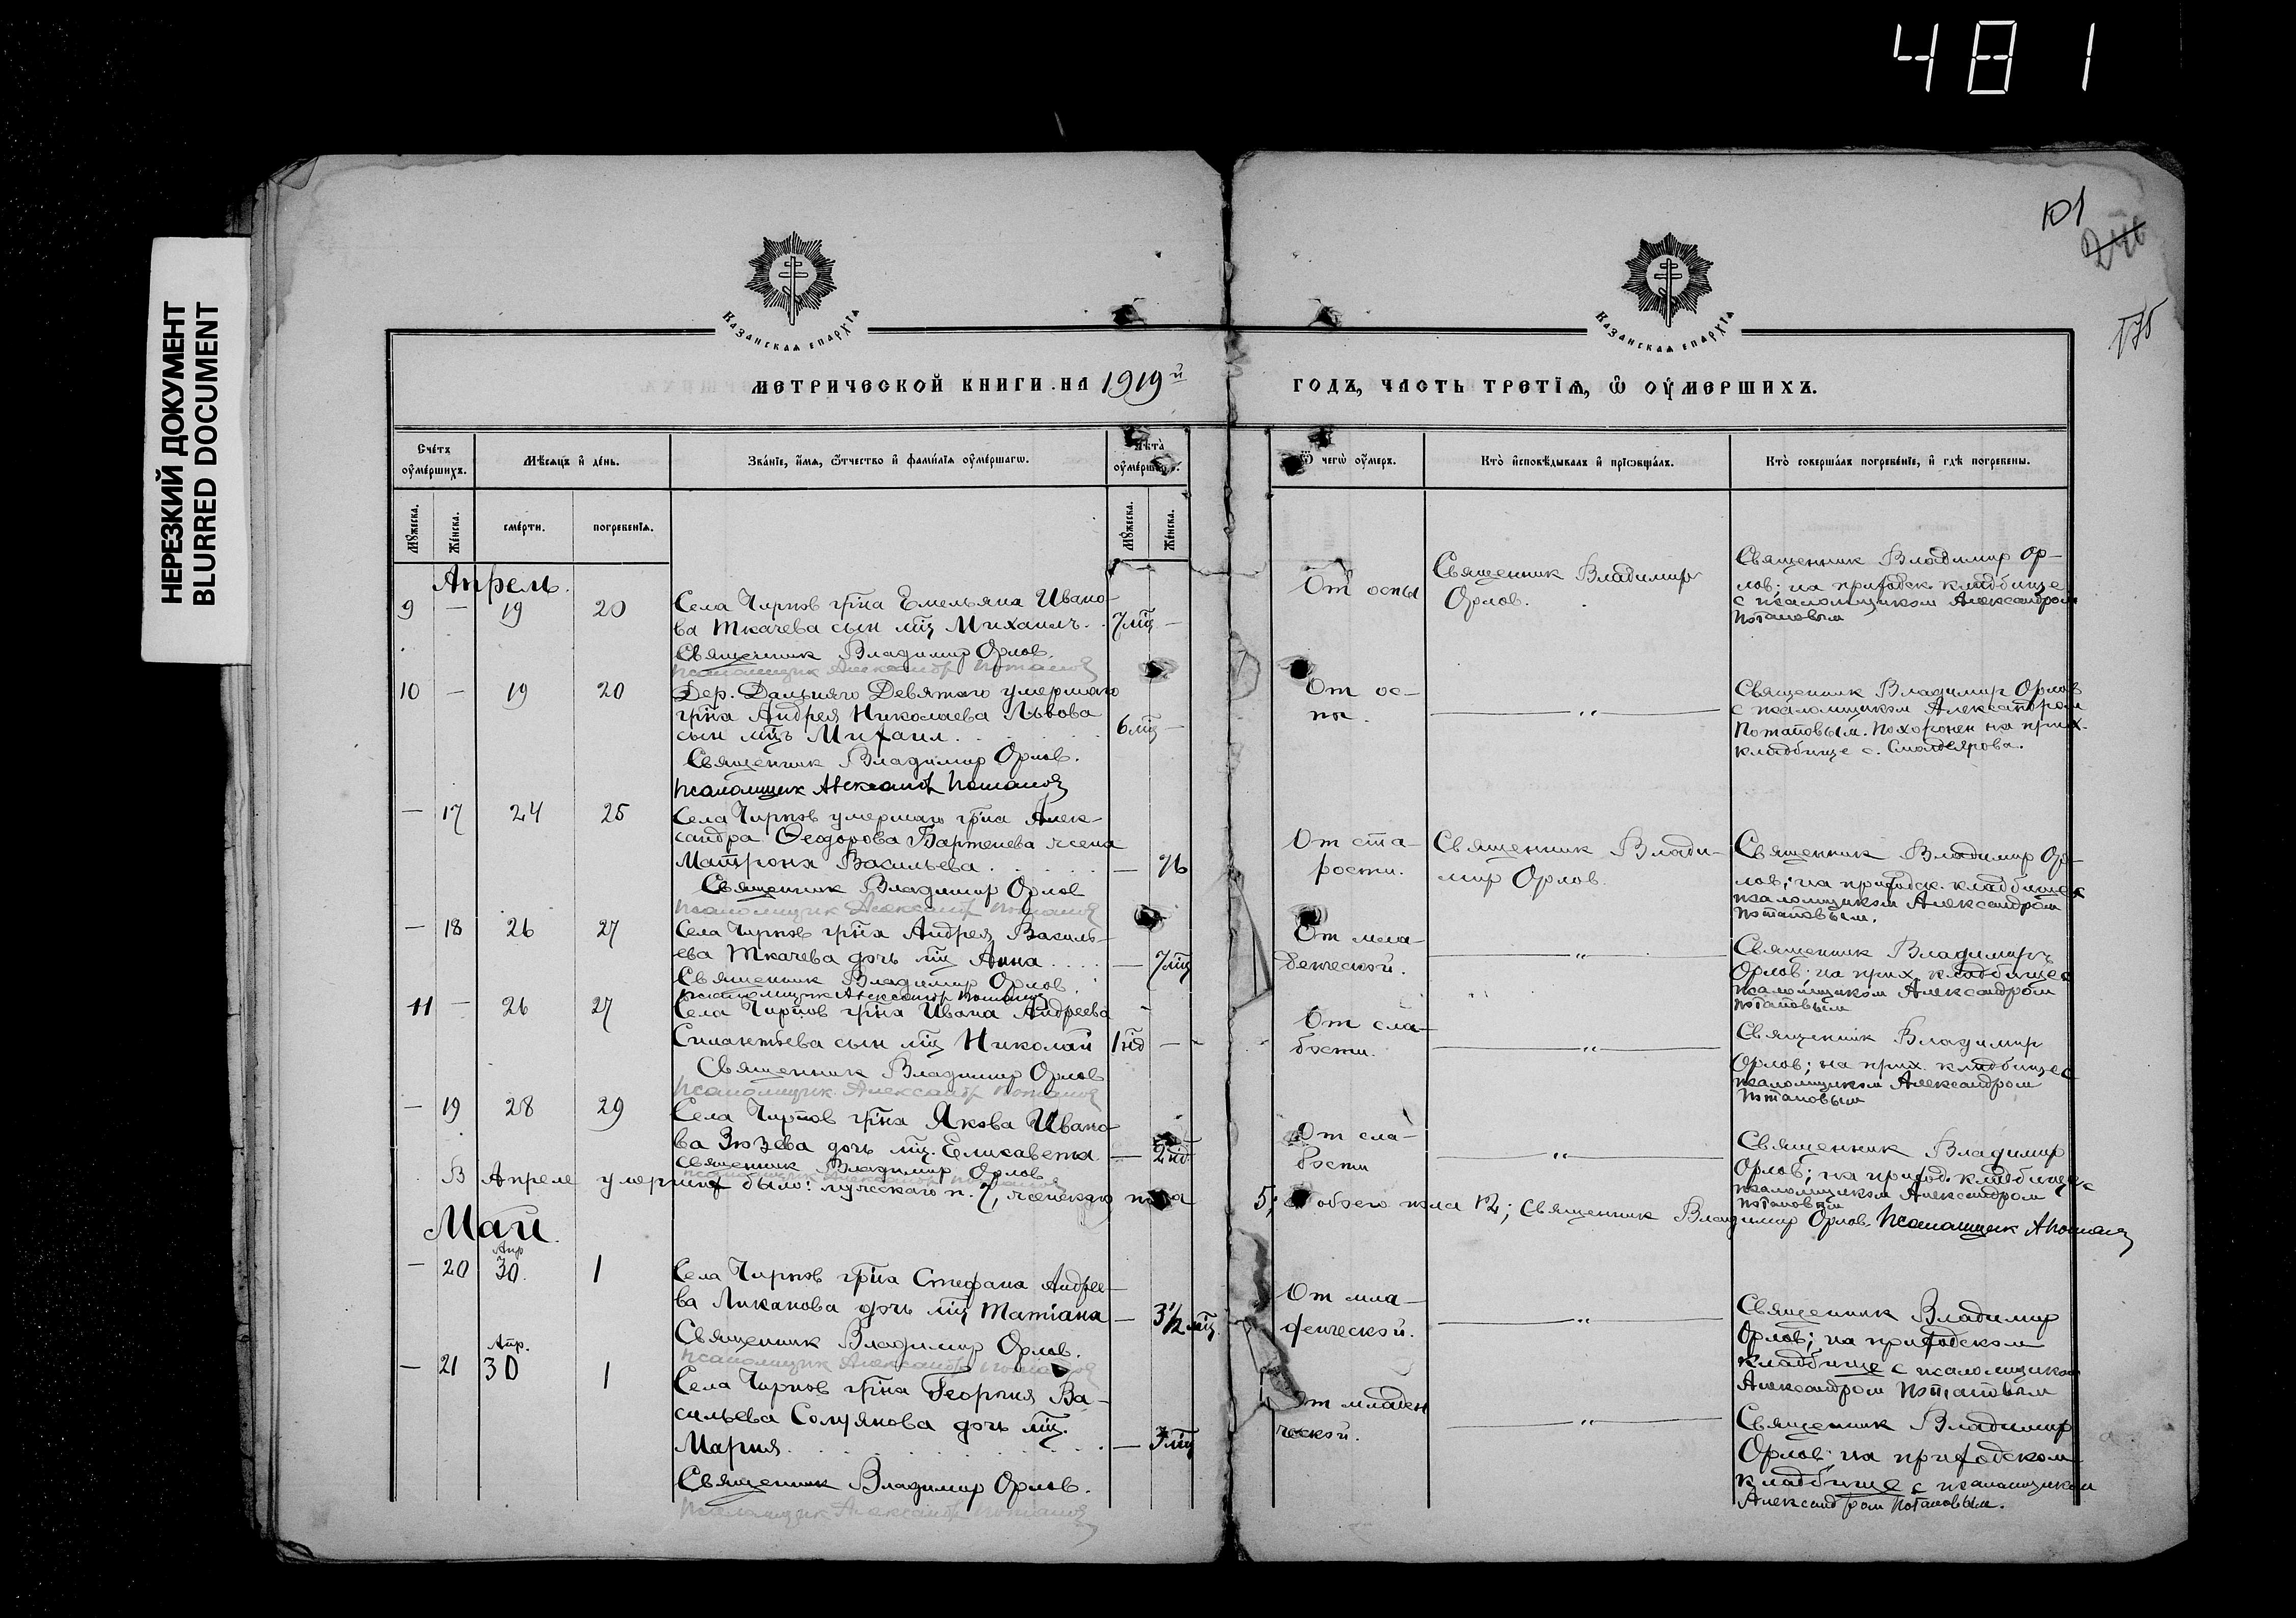 481
НЕРЕЗКИЙ ДОКУМЕНТ
BLURRED DOCUMENT
101
246
175
КАЗАНСКАѦ ЕПАРХІѦ
КАЗАНСКАѦ ЕПАРХІѦ
МЕТРИЧЕСКОЙ КНИГИ НА 1919й ГОДЪ, ЧАСТЬ ТРЕТІѦ, Ѡ ОУМЕРШИХЪ.
Счетъ оумершихъ.
Мѣсяцъ и день.
Званіе, имя, отчество и фамилія оумершагѡ.
Лѣта оумершагѡ.
Ѿ чегѡ оумеръ.
Кто исповѣдывалъ и пріѡбщалъ.
Кто совершалъ погребеніе, и гдѣ погребены.
Мужеска.
Женска.
смерти.
погребенія.
Мужеска.
Женска.
Апрель.
9 — 19 20
Села Чирпов гр͞на Емельяна Ивано-
ва Ткачева сын мц Михаилъ.
7 мц —
Священник Владимир Орлов.
Псаломщик Александр Потапов
От оспы
Священник Владимир
Орлов.
Священник Владимир Ор-
лов; на приходск. кладбище
с псаломщиком Александром
Потаповым
10 — 19 20
Дер. Дальняго Девятого умершаго
гр͞на Андрея Николаева Львова
сын мцъ Михаил.
6 мц —
Священник Владимир Орлов.
Псаломщик Александр Потапов
От ос-
пы.
— „ —
Священник Владимир Орлов
с псаломщиком Александром
Потаповым. Похоронен на прих.
кладбище с.
— 17 24 25
Села Чирпов умершаго гр͞на Алек-
сандра Феодорова Бартенева жена
Матрона Васильева.
— 76
Священник Владимир Орлов
Псаломщик Александр Потапов
От ста-
рости.
Священник Влади-
мир Орлов.
Священник Владимир Ор-
лов; на приходск. кладбище с
псаломщиком Александром
Потаповым.
— 18 26 27
Села Чирпов гр͞на Андрея Василь-
ева Ткачева дочь мц Анна
— 7 мц
Священник Владимир Орлов.
Псаломщик Александр Потапов
От мла-
денческой.
— „ —
Священник Владимиръ
Орлов; на прих. кладбище с
псаломщиком Александром
Потаповым
11 — 26 27
Села Чирпов гр͞на Ивана Андреева
Силантьева сын мц Николай
1 нд —
Священник Владимир Орлов
Псаломщик Александр Потапов
От сла-
бости.
— „ —
Священник Владимир
Орлов; на прих. кладбище с
псаломщиком Александром
Потаповым
— 19 28 29
Села Чирпов гр͞на Якова Ивано-
ва Зюзева дочь мц. Елисавета
— 2 нд
Священник Владимир Орлов
Псаломщик Александр Потапов
От сла-
бости
— „ —
Священник Владимир
Орлов; на приход. кладбище с
псаломщиком Александром
Потаповым
В Апреле умерших было: мужескаго п. 7, женскаго пола 5; обоего пола 12; Священник Владимир Орлов. Псаломщик А Потапов
Май.
— 20 Апр 30. 1
Села Чирпов гр͞на Стефана Андрее-
ва Ликанова дочь мц Татiана
— 3 1/2 мц.
Священник Владимир Орлов.
Псаломщик Александр Потапов
От мла-
денческой.
— „ —
Священник Владимир
Орлов; на приходском
кладбище с псаломщиком
Александром Потаповым
— 21 Апр. 30 1
Села Чирпов гр͞на Георгия Ва-
сильева дочь мц.
Мария.
— 3 мц
Священник Владимир Орлов.
Псаломщик Александр Потапов
От младен
ческой.
— „ —
Священник Владимир
Орлов; на приходском
кладбище с псаломщиком
Александром Потаповым.